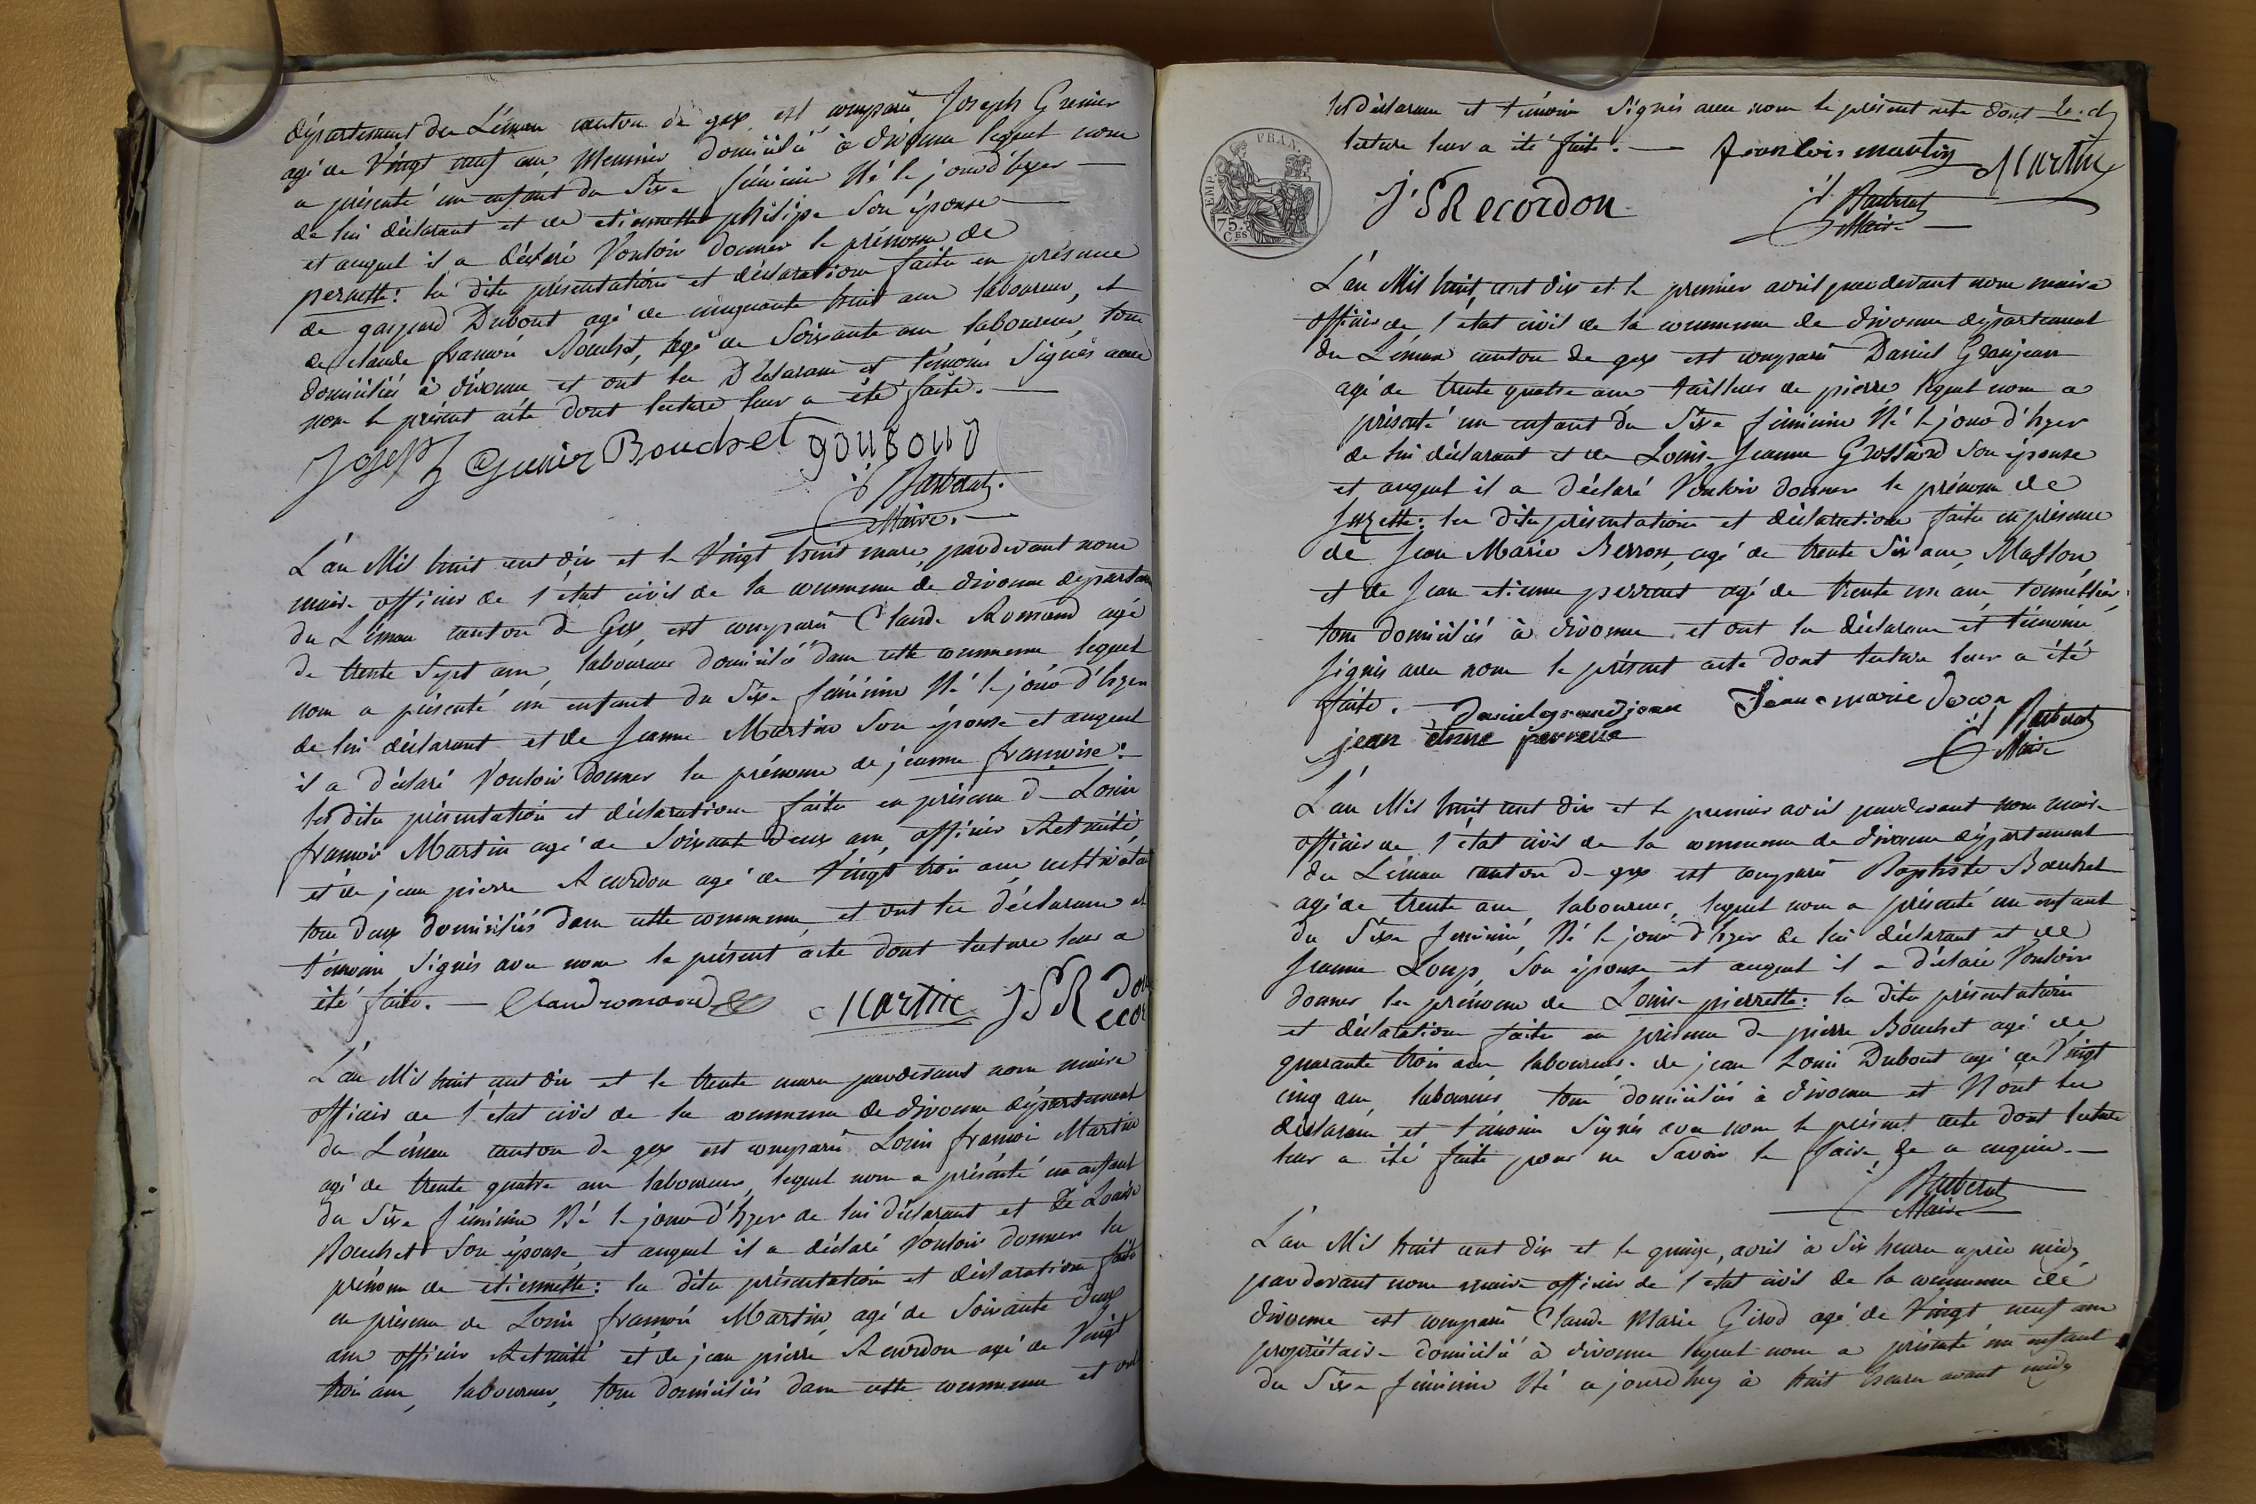 département du Léman canton de gex est comparû Joseph Grenier
agé de Vingt neuf ans, Meunier domicilié à divonne lequel nous
a présenté un enfant du Sexe féminin Né le jour d'hyer
de lui déclarant et de etiennette philipe Son épouse
et auquel il a déclaré Vouloir donner le prénom de
pernette: les dites présentation et déclaration faites en présence
de gaspard Dubout agé de cinquante huit ans laboureur, et
de claude françois Bouchet, agé de Soixante ans laboureur, tous
domiciliés à divonne et ont les Déclarant et témoins Signés avec
nous le présent acte dont lecture leur a été faite.
Joseph Grenier Bouchet gouboud
Barberat
Maire.
L'an Mil huit cent dix et le Vingt huit mars, pardevant nous
maire officier de l'état civil de la commune de divonne départem
du Léman canton de Gex, est comparû Claude Romand agé
de trente Sept ans, laboureur domicilié dans cette commune lequel
nous a présenté un enfant du Sexe féminin Né le jour d'hyer
de lui déclarant et de Jeanne Martin Son épouse et auquel
il a déclaré Vouloir donner les prénoms de jeanne françoise:
les dites présentation et déclaration faites en présence de Louis
françois Martin agé de Soixante Deux ans, officier Retraité
et de jean pierre Recordon agé de Vingt trois ans
tous deux domiciliés dans cette commune, et ont les déclarans et
témoins Signés avec nous le présent acte dont lecture leur a
été faite. Claud romand Martin J P Recordon
L'an Mil huit cent dix et le trente mars pardevant nous maire
officier de l'état civil de la commune de divonne département
du Léman canton de gex est comparû Louis françois Martin
agé de trente quatre ans laboureur, lequel nous a présenté un enfant
du Sexe féminin Né le jour d'hyer de lui déclarant et de Louise
Bouchet Son épouse, et auquel il a déclaré Vouloir donner le
prénom de etiennette: les dites présentation et déclaration faites
en présence de Louis françois Martin agé de Soixante deux
ans officier Retraité et de jean pierre Recordon agé de Vingt
trois ans, laboureur, tous domiciliés dans cette commune et ont
les déclarans et témoins Signés avec nous le présent acte dont
lecture leur a été faite. franlois martin Martin
EMP. FRAN.
75. CES
J P Recordon
Barberat
Maire
L'an Mil huit cent dix et le premier avril pardevant nous maire
officier de l'état civil de la commune de divonne département
du Léman canton de gex est comparû Daniel Granjean
agé de trente quatre ans tailleur de pierre lequel nous a
présenté un enfant du Sexe féminin Né le jour d'hyer
de lui déclarant et de Louise Jeanne Son épouse
et auquel il a déclaré Vouloir donner le prénom de
Suzette: les dites présentation et déclaration faites en présence
de Jean Marie agé de trente Six ans, Masson,
et de Jean etienne perrent agé de trente un ans
tous domiciliés à divonne et ont les déclarans et témoins
Signés avec nous le présent acte dont lecture leur a été
faite. Daniel grandjean Jean marie
jean Barberat
Maire
L'an Mil huit cent dix et le premier avril pardevant nous maire
officier de l'état civil de la commune de divonne département
du Léman canton de gex est comparû Baptiste Bouchet
agé de trente ans laboureur, lequel nous a présenté un enfant
du Sexe féminin, Né le jour d'hyer de lui déclarant et de
Jeanne Loup, Son épouse et auquel il a déclaré Vouloir
donner les prénoms de Louise pierrette: les dites présentation
et déclaration faites en présence de pierre Bouchet agé de
quarante trois ans laboureur. de jean Louis Dubout agé de Vingt
cinq ans laboureur, tous domiciliés à divonne et N'ont les
déclarans et témoins Signés avec nous le présent acte dont lecture
leur a été faite pour ne Savoir le faire de ce enquis.
Barberat
Maire
L'an Mil huit cent dix et le quinze, avril à Six heures après midy
pardevant nous maire officier de l'état civil de la commune de
divonne est comparû Claude Marie Girod agé de Vingt neuf ans
propriétaire domicilié à divonne lequel nous a présenté un enfant
du Sexe féminin Né ce jourd'huy à huit heures avant midy